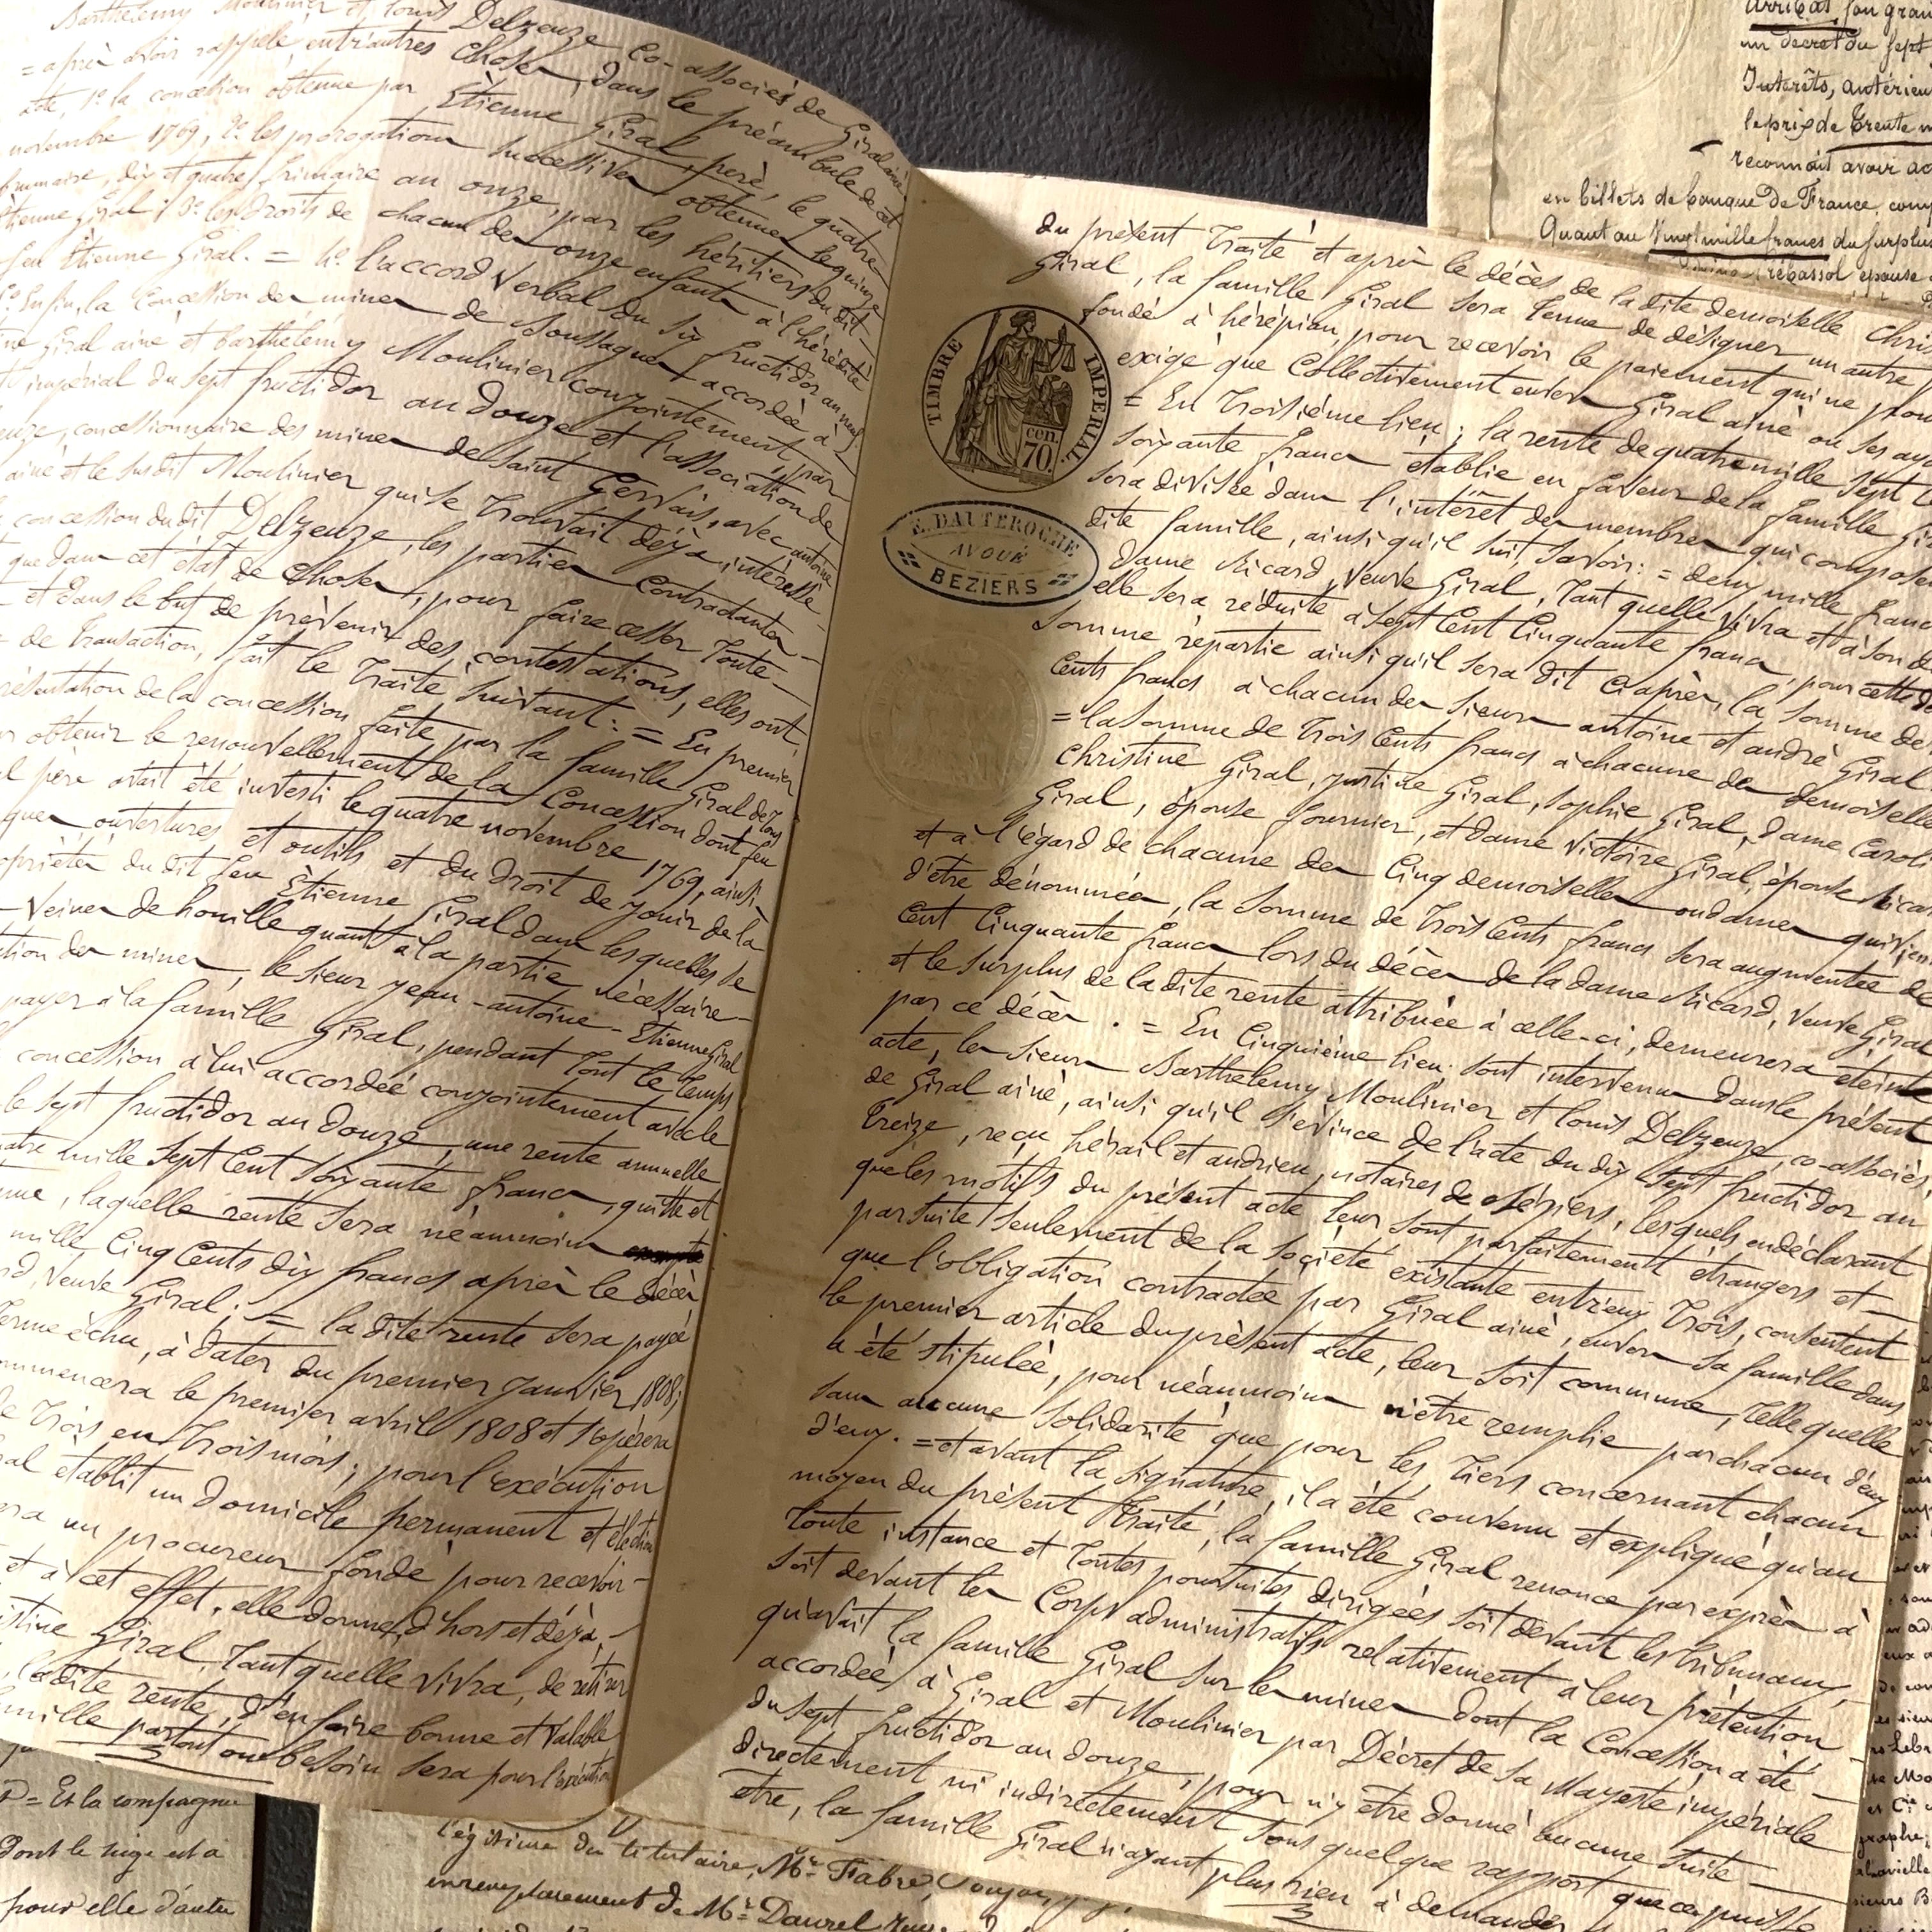 Barthélemy Moulinier et Louis Delzeuze co-associés de Giral ainé
= après avoir rappelé entr'autres choses, dans le préambule de cet
acte, 1º la concession obtenue par Étienne Giral père, le quatre
novembre 1769, 2º les prorogations successives obtenues le quinze
frimaire, dix et quatre frimaire an onze, par les héritiers du dit
Étienne Giral; 3º les droits de chacun des onze enfants à l'hérédité
feu Étienne Giral. = 4º l'accord verbal du six fructidor an neuf
5º Enfin, la Concession des mines de Boussagues accordée à
Giral ainé et Barthélemy Moulinier conjointement, par
impérial du sept fructidor an douze et l'association de
concessionnaire des mines de Saint Gervais, avec antoine
ainé et le susdit Moulinier qui se trouvait déjà intéressé
concession du dit Delzeuze, les parties contractantes
que dans cet état de choses, pour faire cesser toute
et dans le but de prévenir des contestations, elles ont,
de transaction, fait le traité suivant: = En premier
de la concession faite par la famille Giral de tous
obtenir le renouvellement de la Concession dont feu
père avait été investi le quatre novembre 1769, ainsi
ouvertures et outils et du droit de jouir de la
du dit feu Étienne Giral dans lesquelles se
veines de houille quant à la partie nécessaire
des mines, le sieur Jean-antoine-Etienne Giral
payer à la famille Giral, pendant tout le temps
concession à lui accordée conjointement avec le
le sept fructidor an douze, une rente annuelle
mille sept cent soixante francs, quitte et
laquelle rente sera néanmoins
mille cinq cents dix francs après le décès
veuve Giral; = la dite rente sera payée
terme échu, à dater du premier janvier 1808;
commencera le premier avril 1808 et s'opérera
de trois en trois mois; pour l'exécution
établit un domicile permanent et élection
un procureur fondé pour recevoir
et à cet effet, elle donne, d'hors et déjà,
Giral, tant quelle vivra, de retirer
la dite rente, d'en faire bonne et valable
partout où besoin sera pour l'exécution
du présent traité et après le décès de la dite demoiselle Chris
Giral, la famille Giral sera tenue de désigner un autre
fondé à hérépian, pour recevoir le paiement qui ne pour
exigé que Collectivement envers Giral ainé ou ses ay
= En troisième lieu; la rente de quatre mille sept c
soixante francs établie en faveur de la famille Gi
sera divisée dans l'intérêt des membres qui compose
dite famille, ainsi qu'il suit, savoir: = deux mille franc
Dame Ricard, veuve Giral, tant quelle vivra et à son dé
elle sera réduite à sept cent cinquante francs, pour cette de
somme répartie ainsi qu'il sera dit ci après, la somme de
cents francs à chacun des sieurs antoine et andré Giral
= la somme de trois cents francs à chacune des demoiselles
Christine Giral, justine Giral, Sophie Giral, dame Caroli
Giral, épouse fournier, et dame Victoire Giral, épouse Ricar
et à l'égard de chacune des cinq demoiselles ou dames qui vien
d'être dénommées, la somme de trois cents francs sera augmentée de
cent cinquante francs lors du décès de la dame Ricard, veuve Giral
et le surplus de la dite rente attribuée à celle-ci, demeurera éteinte
par ce décès. = En Cinquième lieu; sont intervenus dans le présent
acte, les sieurs Barthélemy Moulinier et Louis Delzeuze, co-associés
de Giral ainé, ainsi qu'il s'évince de l'acte du dix sept fructidor an
treize, reçu hérail et andrieu, notaires de Béziers, lesquels en déclarant
que les motifs du présent acte leurs sont parfaitements étrangers et
par suite seulement de la société existante entr'eux trois, consentent
que l'obligation contractée par Giral ainé, envers sa famille dans
le premier article du présent acte, leur soit commune, telle quelle
a été stipulée, pour néanmoins n'être remplie par chacun d'eux
sans aucune solidarité que pour les tiers concernant chacun
d'eux. = et avant la signature, il a été convenu et expliqué qu'au
moyen du présent traité, la famille Giral renonce par exprès à
toute instance et toutes poursuites dirigées soit devant les tribunaux,
soit devant les Corps administratifs relativement à leur prétention
qu'avait la famille Giral sur les mines dont la Concession a été
accordée à Giral et Moulinier par Décret de sa Majesté impériale
du sept fructidor an douze, pour n'y être donné aucune suite
directement ni indirectement sous quelque rapport que ce puisse
être, la famille Giral n'ayant plus rien à demander
TIMBRE IMPÉRIAL
cen. 70.
E. DAUTEROCHE
AVOUÉ
BEZIERS
un décret du sept
Intérêts, antérieu
le prix de trente m
reconnait avoir
en billets de banque de France, comp
Quant au vingt mille francs du surplus
Trébassol, épouse
= Et la compagnie
dont le siège est à
pour elle d'autre
légitime du titulaire, Mr. Fabre,
en remplacement de Mr. Daurel